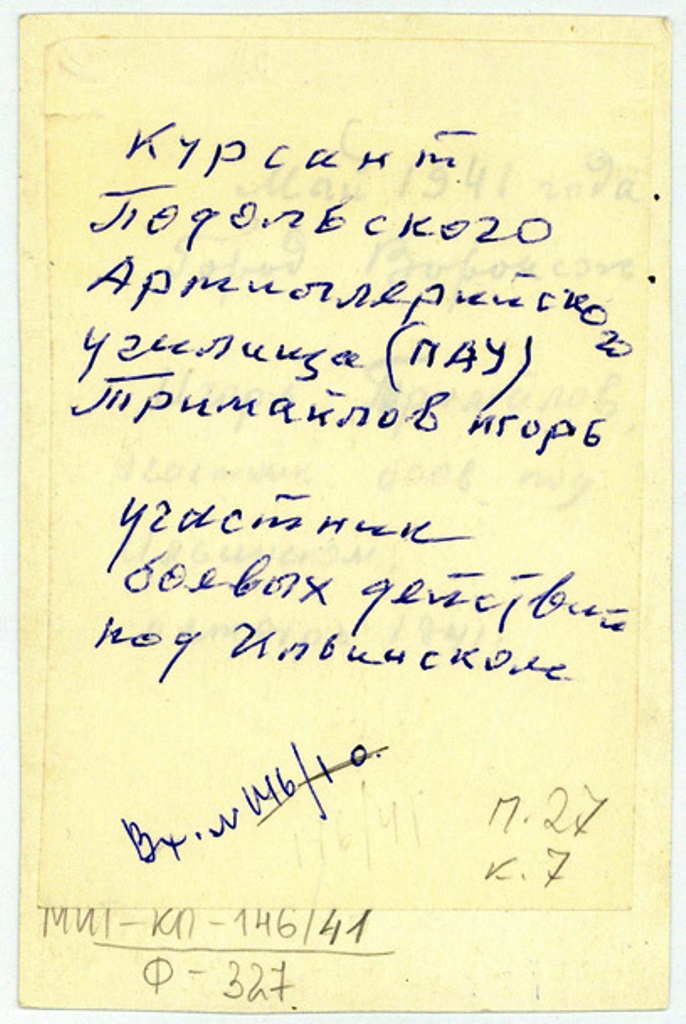 Курсант
Подольского
Артиллерийского
училища (ПАУ)
Тримайлов Игорь
участник
боевых действий
под Ильинском
Вх. № 146/10.
П. 27
к. 7
МИГ-КП-146/41
Ф-327